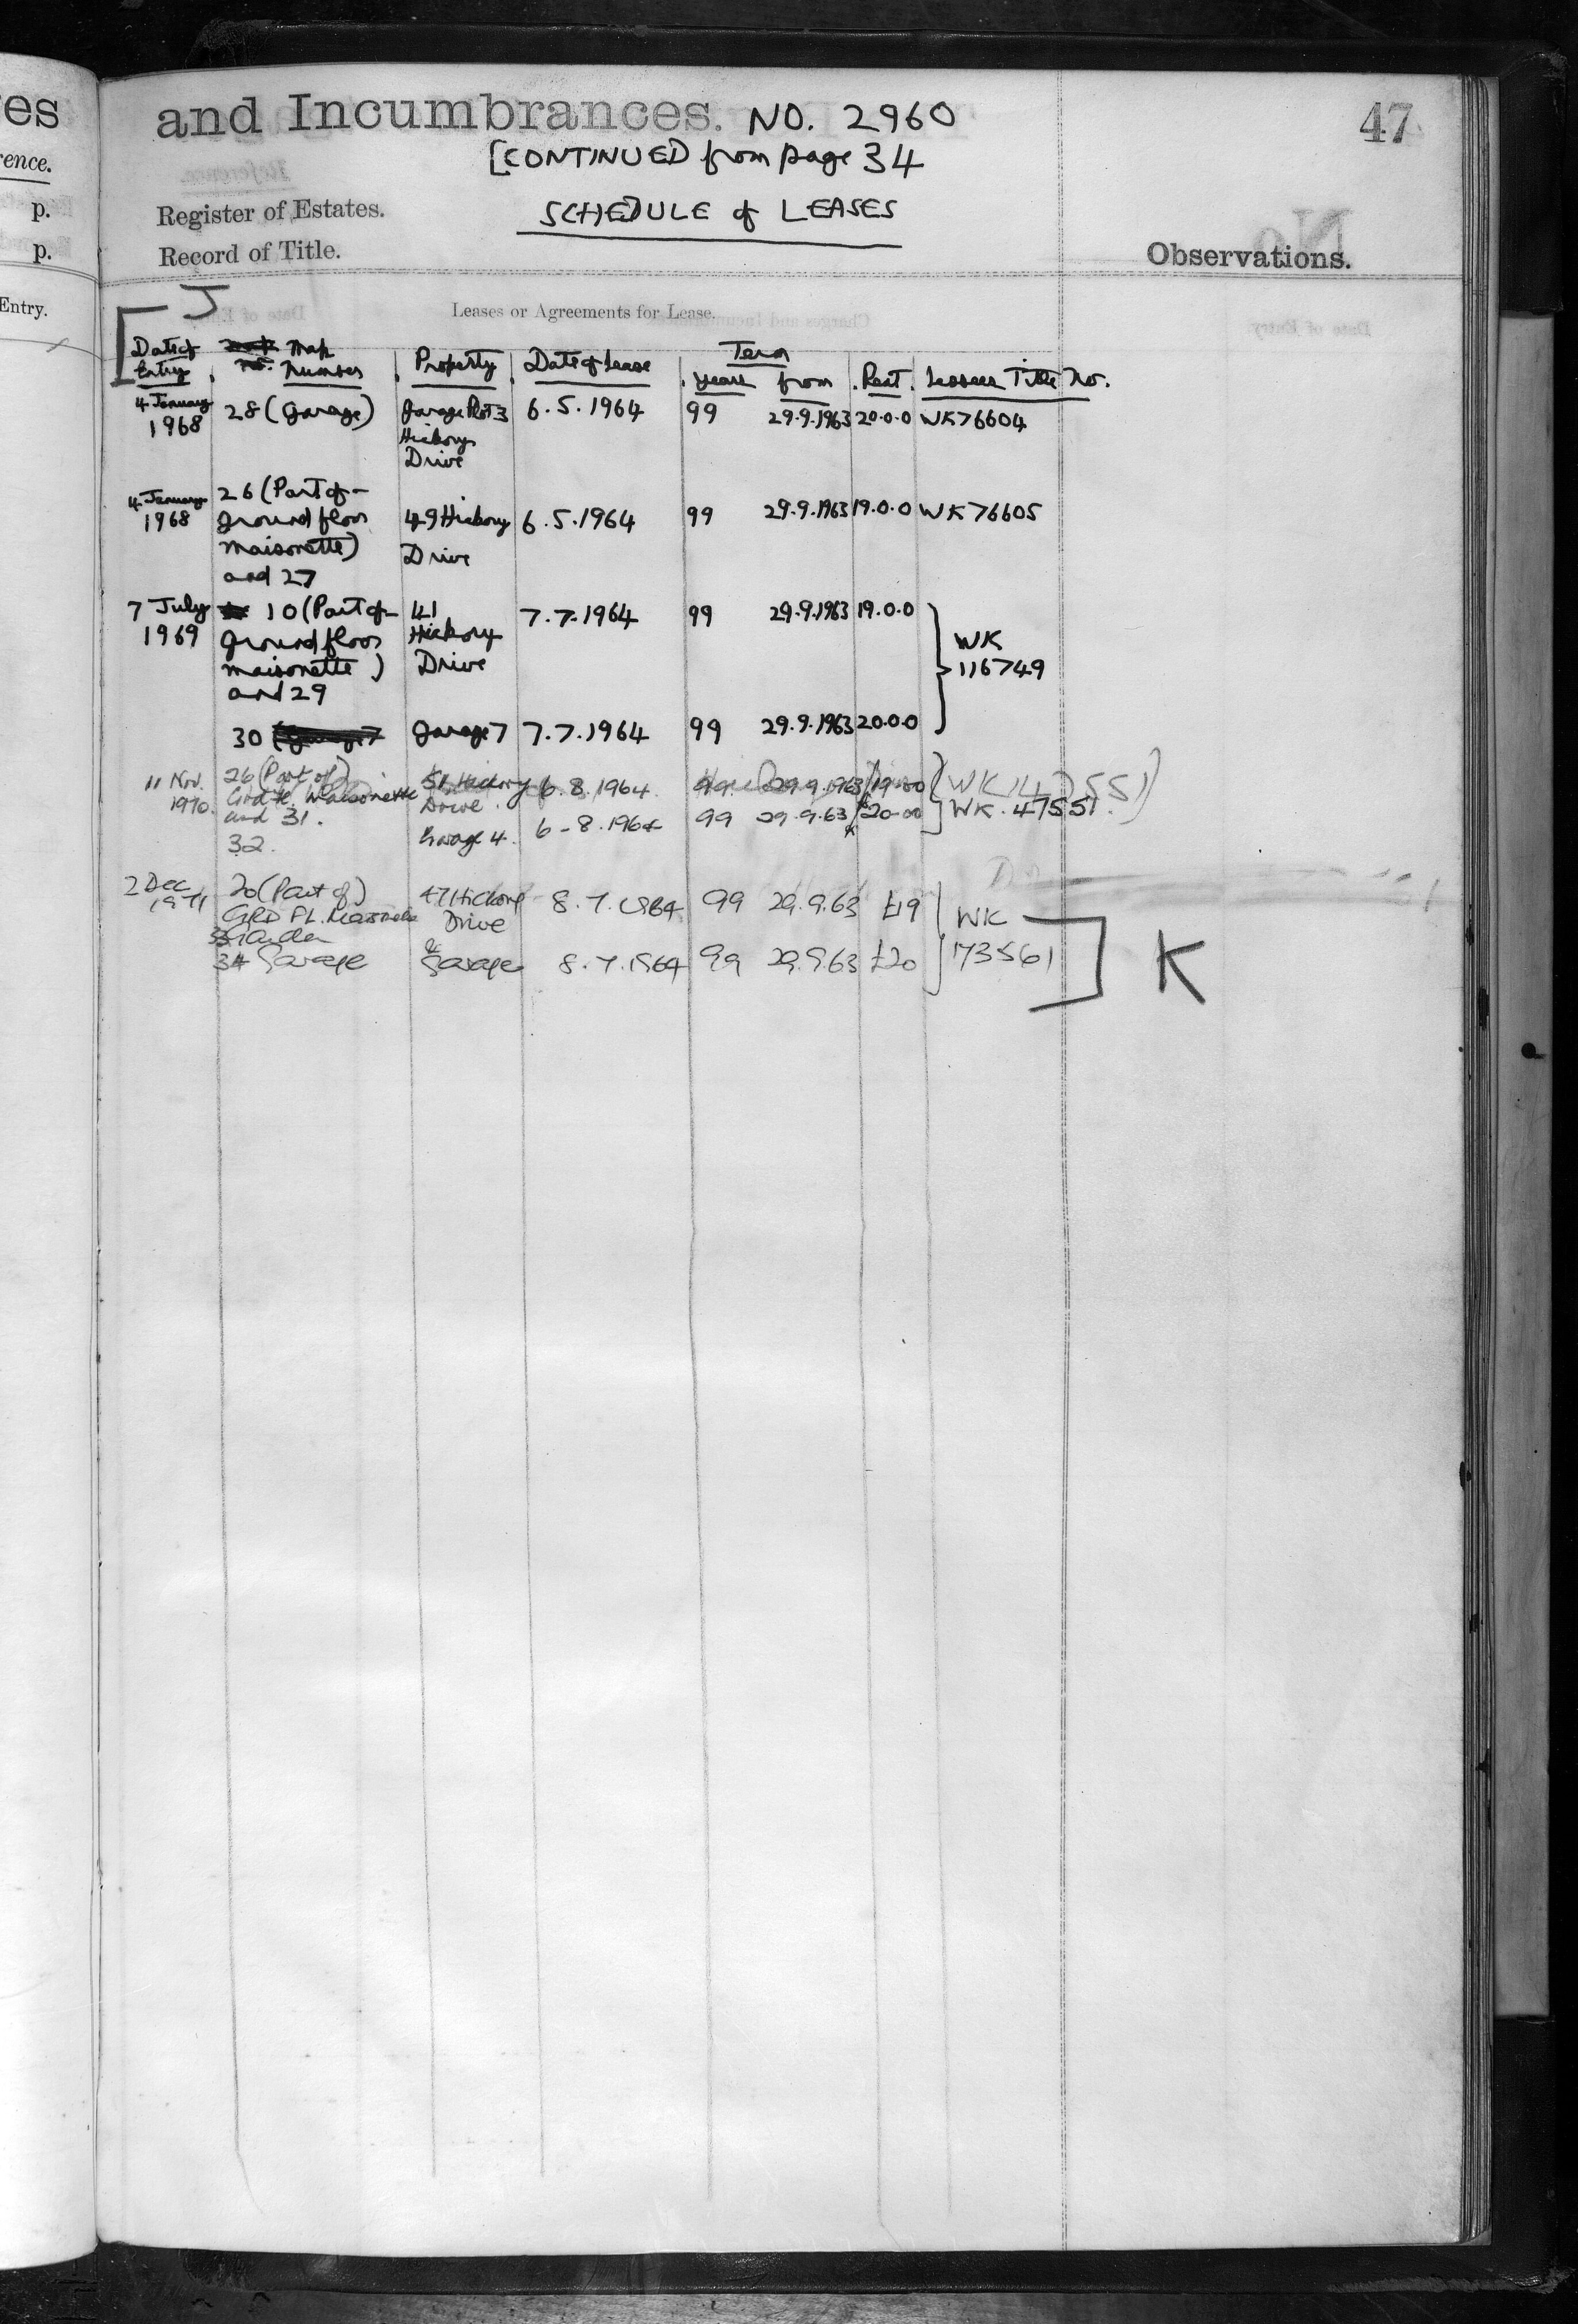 es
rence.
p.
p.
Entry.
and Incumbrances. NO. 2960
47
[CONTINUED from page 34
Register of Estates.
SCHEDULE of LEASES
Record of Title.
Observations.
J
Leases or Agreements for Lease.
Term
Date of Entry Map Number Property Date of Lease years from Rent Lessees Title No.
4 January 28 (Garage) Garage Plot 3 6.5.1964 99 29.9.1963 20.0.0 WK76604
1968 Hickory
Drive
4 January 26 (Part of
1968 ground floor 49 Hickory 6.5.1964 99 29.9.1963 19.0.0 WK76605
maisonette) Drive
and 27
7 July 10 (Part of 41 7.7.1964 99 29.9.1963 19.0.0
1969 ground floor Hickory WK
maisonette) Drive 116749
and 29
30 Garage 7 7.7.1964 99 29.9.1963 20.0.0
11 Nov. 26 (Part of) 51 Hickory 6.8.1964 99 29.9.1963 19-00 (WK147551)
1970. Grd fl. Maisonette Drive. WK.47551.
and 31.
32. Garage 4. 6-8.1964 99 29.9.63 20-00
2 Dec 20 (Part of) 47 Hickory 8.7.1964 99 29.9.63 £19 WK
1971 GRD FL. Maisonette Drive
33 Garden
34 Garage & Garage 8.7.1964 99 29.9.63 £20 173561
K